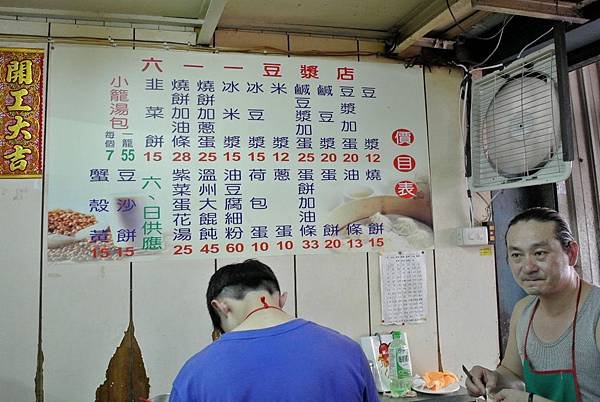 開工大吉
六一一豆漿店
價目表
豆漿 12
豆漿加蛋 20
鹹豆漿 20
鹹豆漿加蛋 25
米漿 12
冰豆漿 15
冰米漿 15
燒餅加蔥蛋 25
燒餅加油條 28
韭菜餅 15
小籠湯包
一籠 55
每個 7
燒餅 15
油條 13
蛋餅 20
蛋餅加油條 33
蔥蛋 10
荷包蛋 10
油豆腐細粉 60
溫州大餛飩 45
紫菜蛋花湯 25
六、日供應
豆沙餅 15
蟹殼黃 15